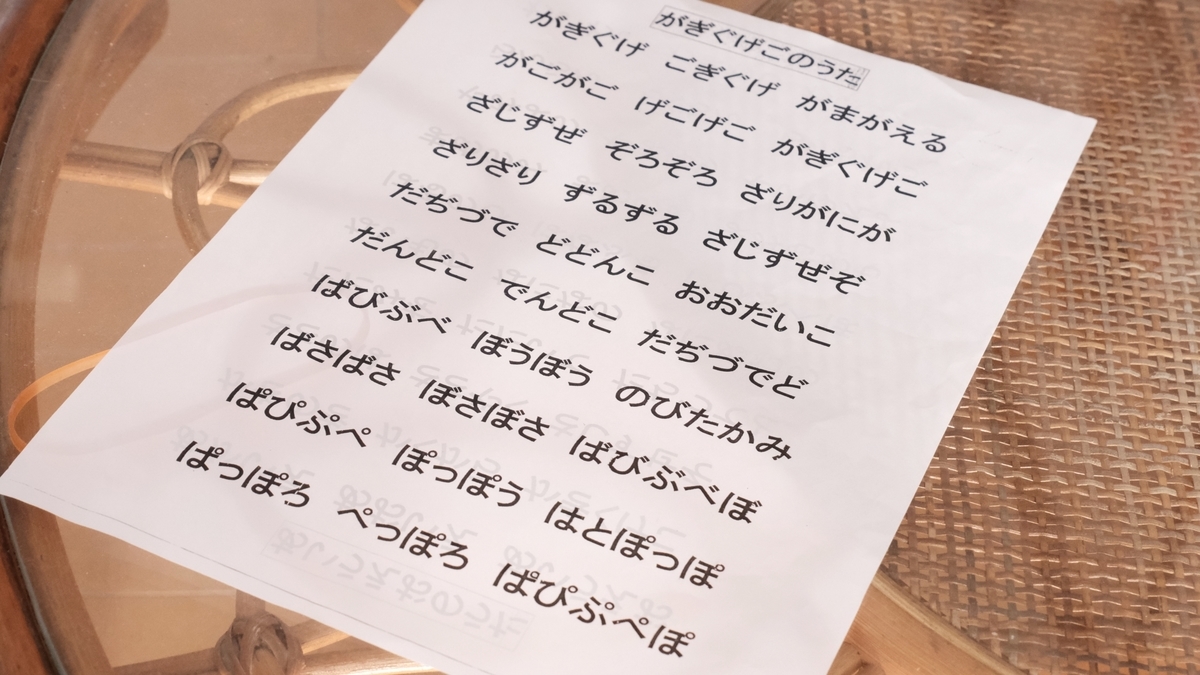 がぎぐげごのうた
がぎぐげ ごぎぐげ がまがえる
がごがご げごげご がぎぐげご
ざじずぜ ぞろぞろ ざりがにが
ざりざり ずるずる ざじずぜぞ
だぢづで どどんこ おおだいこ
だんどこ でんどこ だぢづでど
ばびぶべ ぼうぼう のびたかみ
ばさばさ ぼさぼさ ばびぶべぼ
ぱぴぷぺ ぽっぽう はとぽっぽ
ぱっぽろ ぺっぽろ ぱぴぷぺぽ